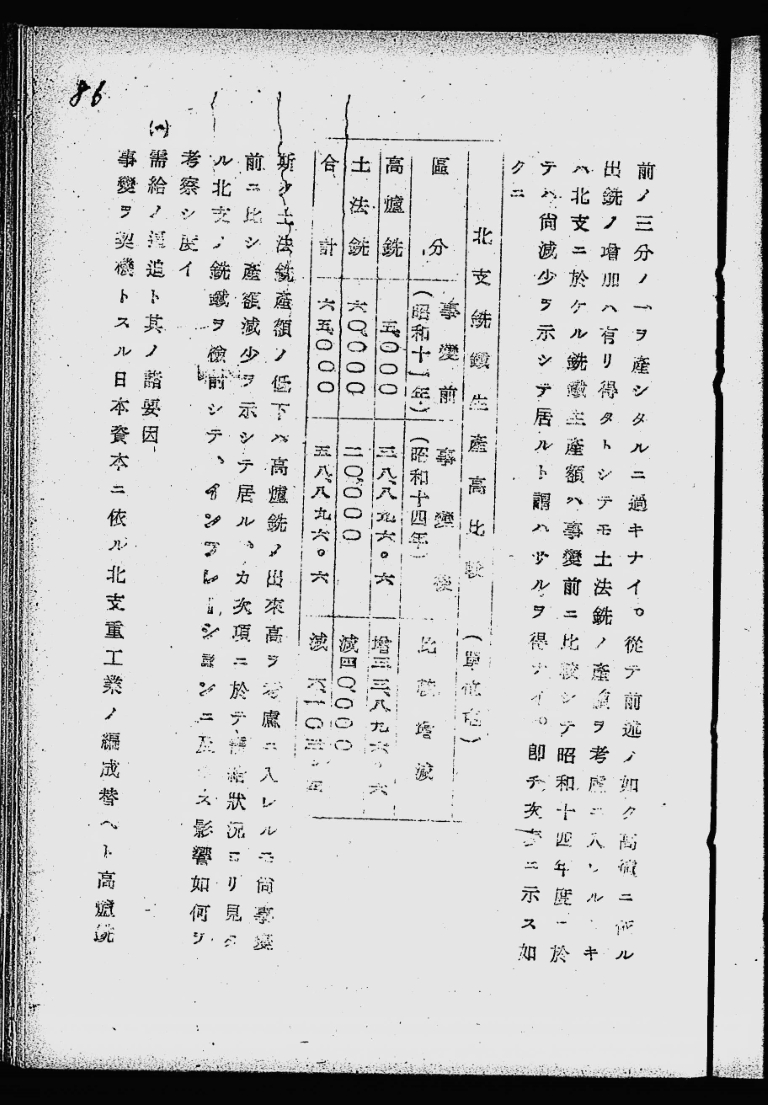 86
前ノ三分ノ一ヲ産シタルニ過キナイ。從テ前述ノ如ク高爐ニ依ル
出銑ノ增加ハ有リ得タトシテモ土法銑ノ產額ヲ考慮ニ入レルトキ
ハ北支ニ於ケル銑鐵生產額ハ事變前ニ比較シテ昭和十四年度ニ於
テハ尚減少ヲ示シテ居ルト謂ハサルヲ得ナイ。卽チ次表ニ示ス如
クニ
北支銑鐵生產高比較 (單位瓲)
區分 事變前(昭和十一年) 事變後(昭和十四年) 比較增減
高爐銑 五、〇〇〇 三八、八九六。六 增三三、八九六。六
土法銑 六〇、〇〇〇 二〇、〇〇〇 減四〇、〇〇〇
合計 六五、〇〇〇 五八、八九六。六 減 六、一〇三
斯ク土法銑產額ノ低下ハ高爐銑ノ出來高ヲ考慮ニ入レルモ尚事變
前ニ比シ產額減少ヲ示シテ居ル、カ次項ニ於テ需給狀況ヨリ見タ
ル北支ノ銑鐵ヲ檢討シテ、インフレーションニ及ホス影響如何ヲ
考察シ度イ
需給ノ逼迫ト其ノ諸要因
事變ヲ契機トスル日本資本ニ依ル北支重工業ノ編成替ヘト高爐銑